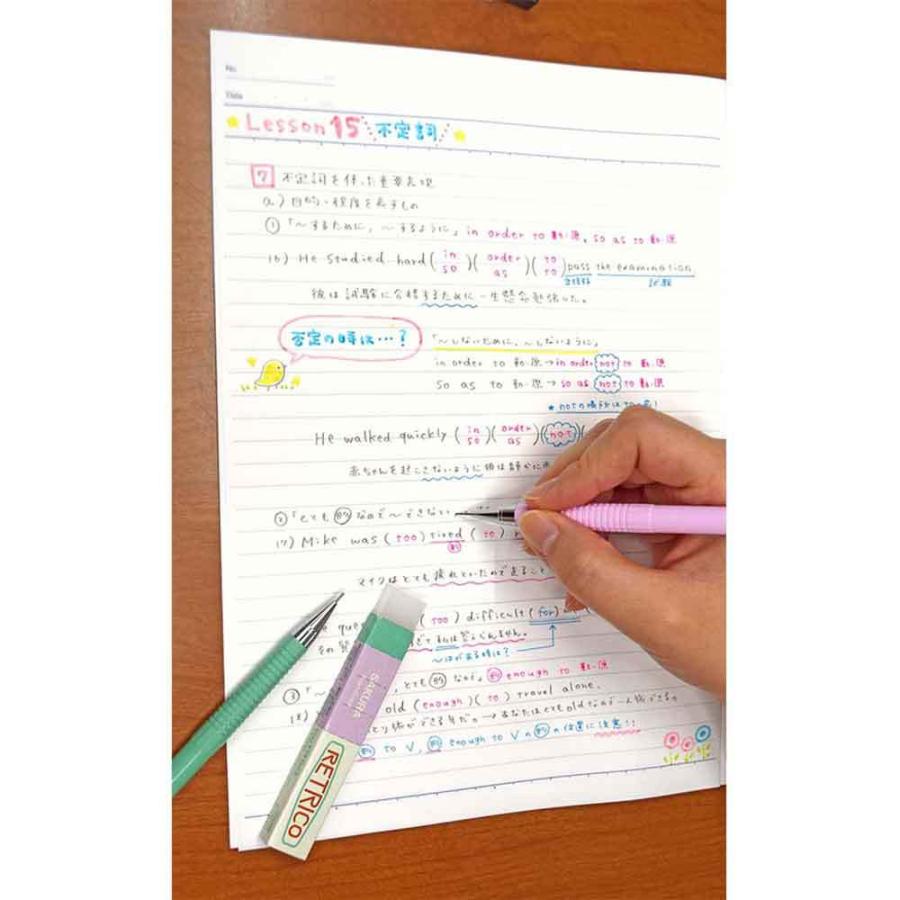 No.
Date
Lesson 15 不定詞
7 不定詞を伴った重要表現
a) 目的、程度を表すもの
① 「〜するために, 〜するように」 in order to 動・原, so as to 動・原
16) He studied hard (in so)(order as)(to to) pass the examination
合格する 試験
彼は試験に合格するために一生懸命勉強した。
否定の時は…?
「〜しないために, 〜しないように」
in order to 動・原 → in order not to 動・原
so as to 動・原 → so as not to 動・原
★ notの場所はtoの前!
He walked quickly (in so)(order as)(not)(
赤ちゃんを起こさないように彼は静かに
② 「とても 形 なので〜できない
17) Mike was (too) tired (to)
形
マイクはとても疲れていたので走ること
que (too) difficult (for)
その 私は答えられません。
〜はがある時は?
③ 「〜 , とても 形 なので」 形 enough to 動・原
18) old (enough)(to) travel alone.
形 to V, 形 enough to V の 形 の位置に注意!!
SAKURA
RETRICO